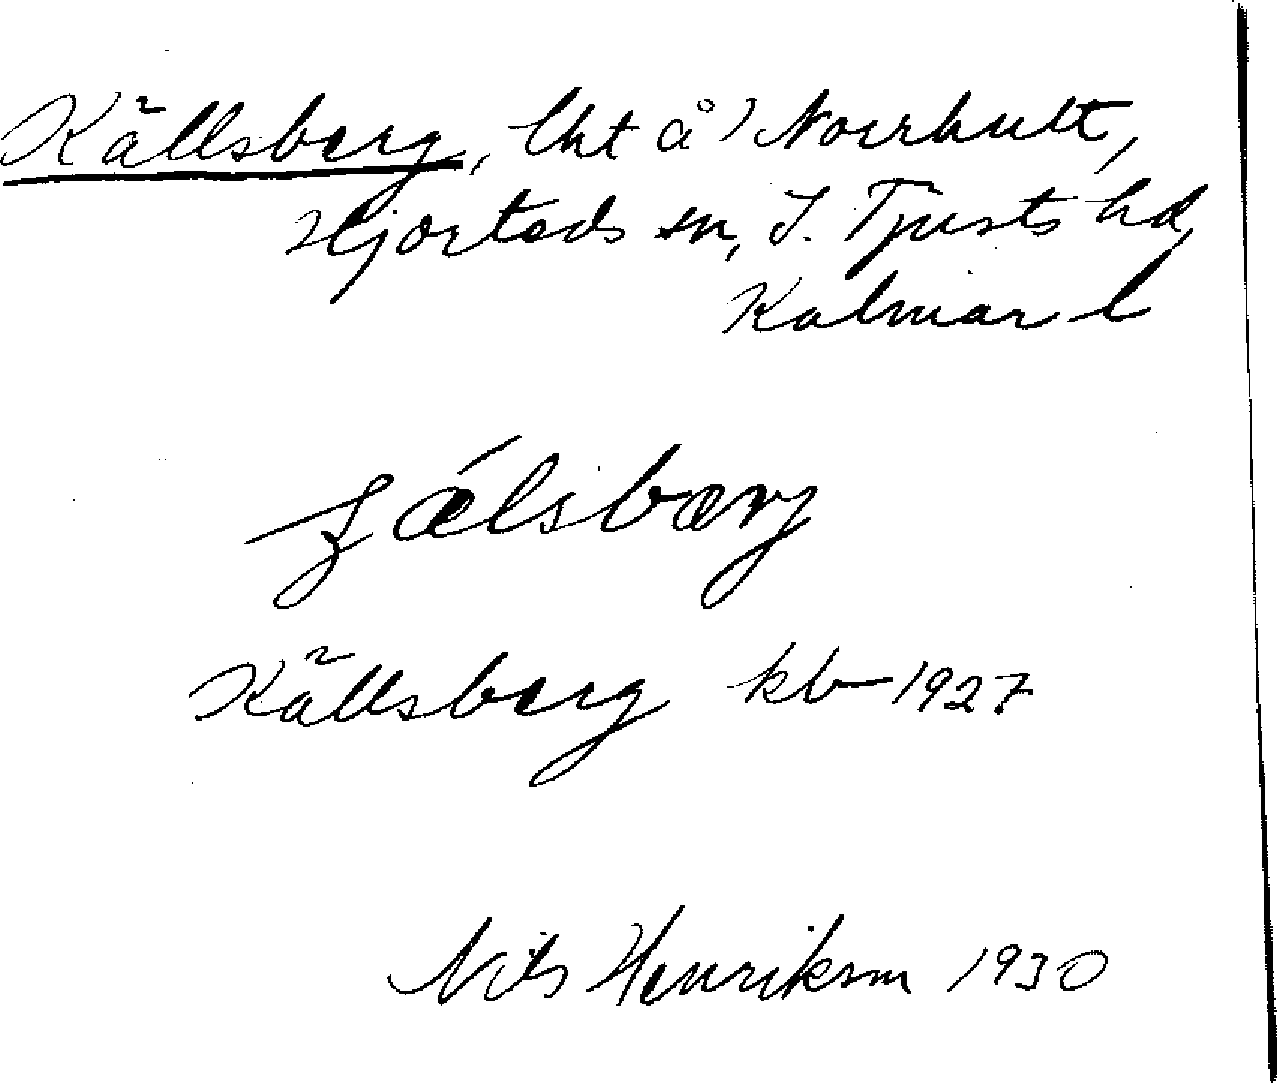 Källsberg, lht å Norrhult,
Hjorteds sn, S. Tjusts hd,
Kalmar l
Källsberg kb 1927
Nils Henrikson 1930